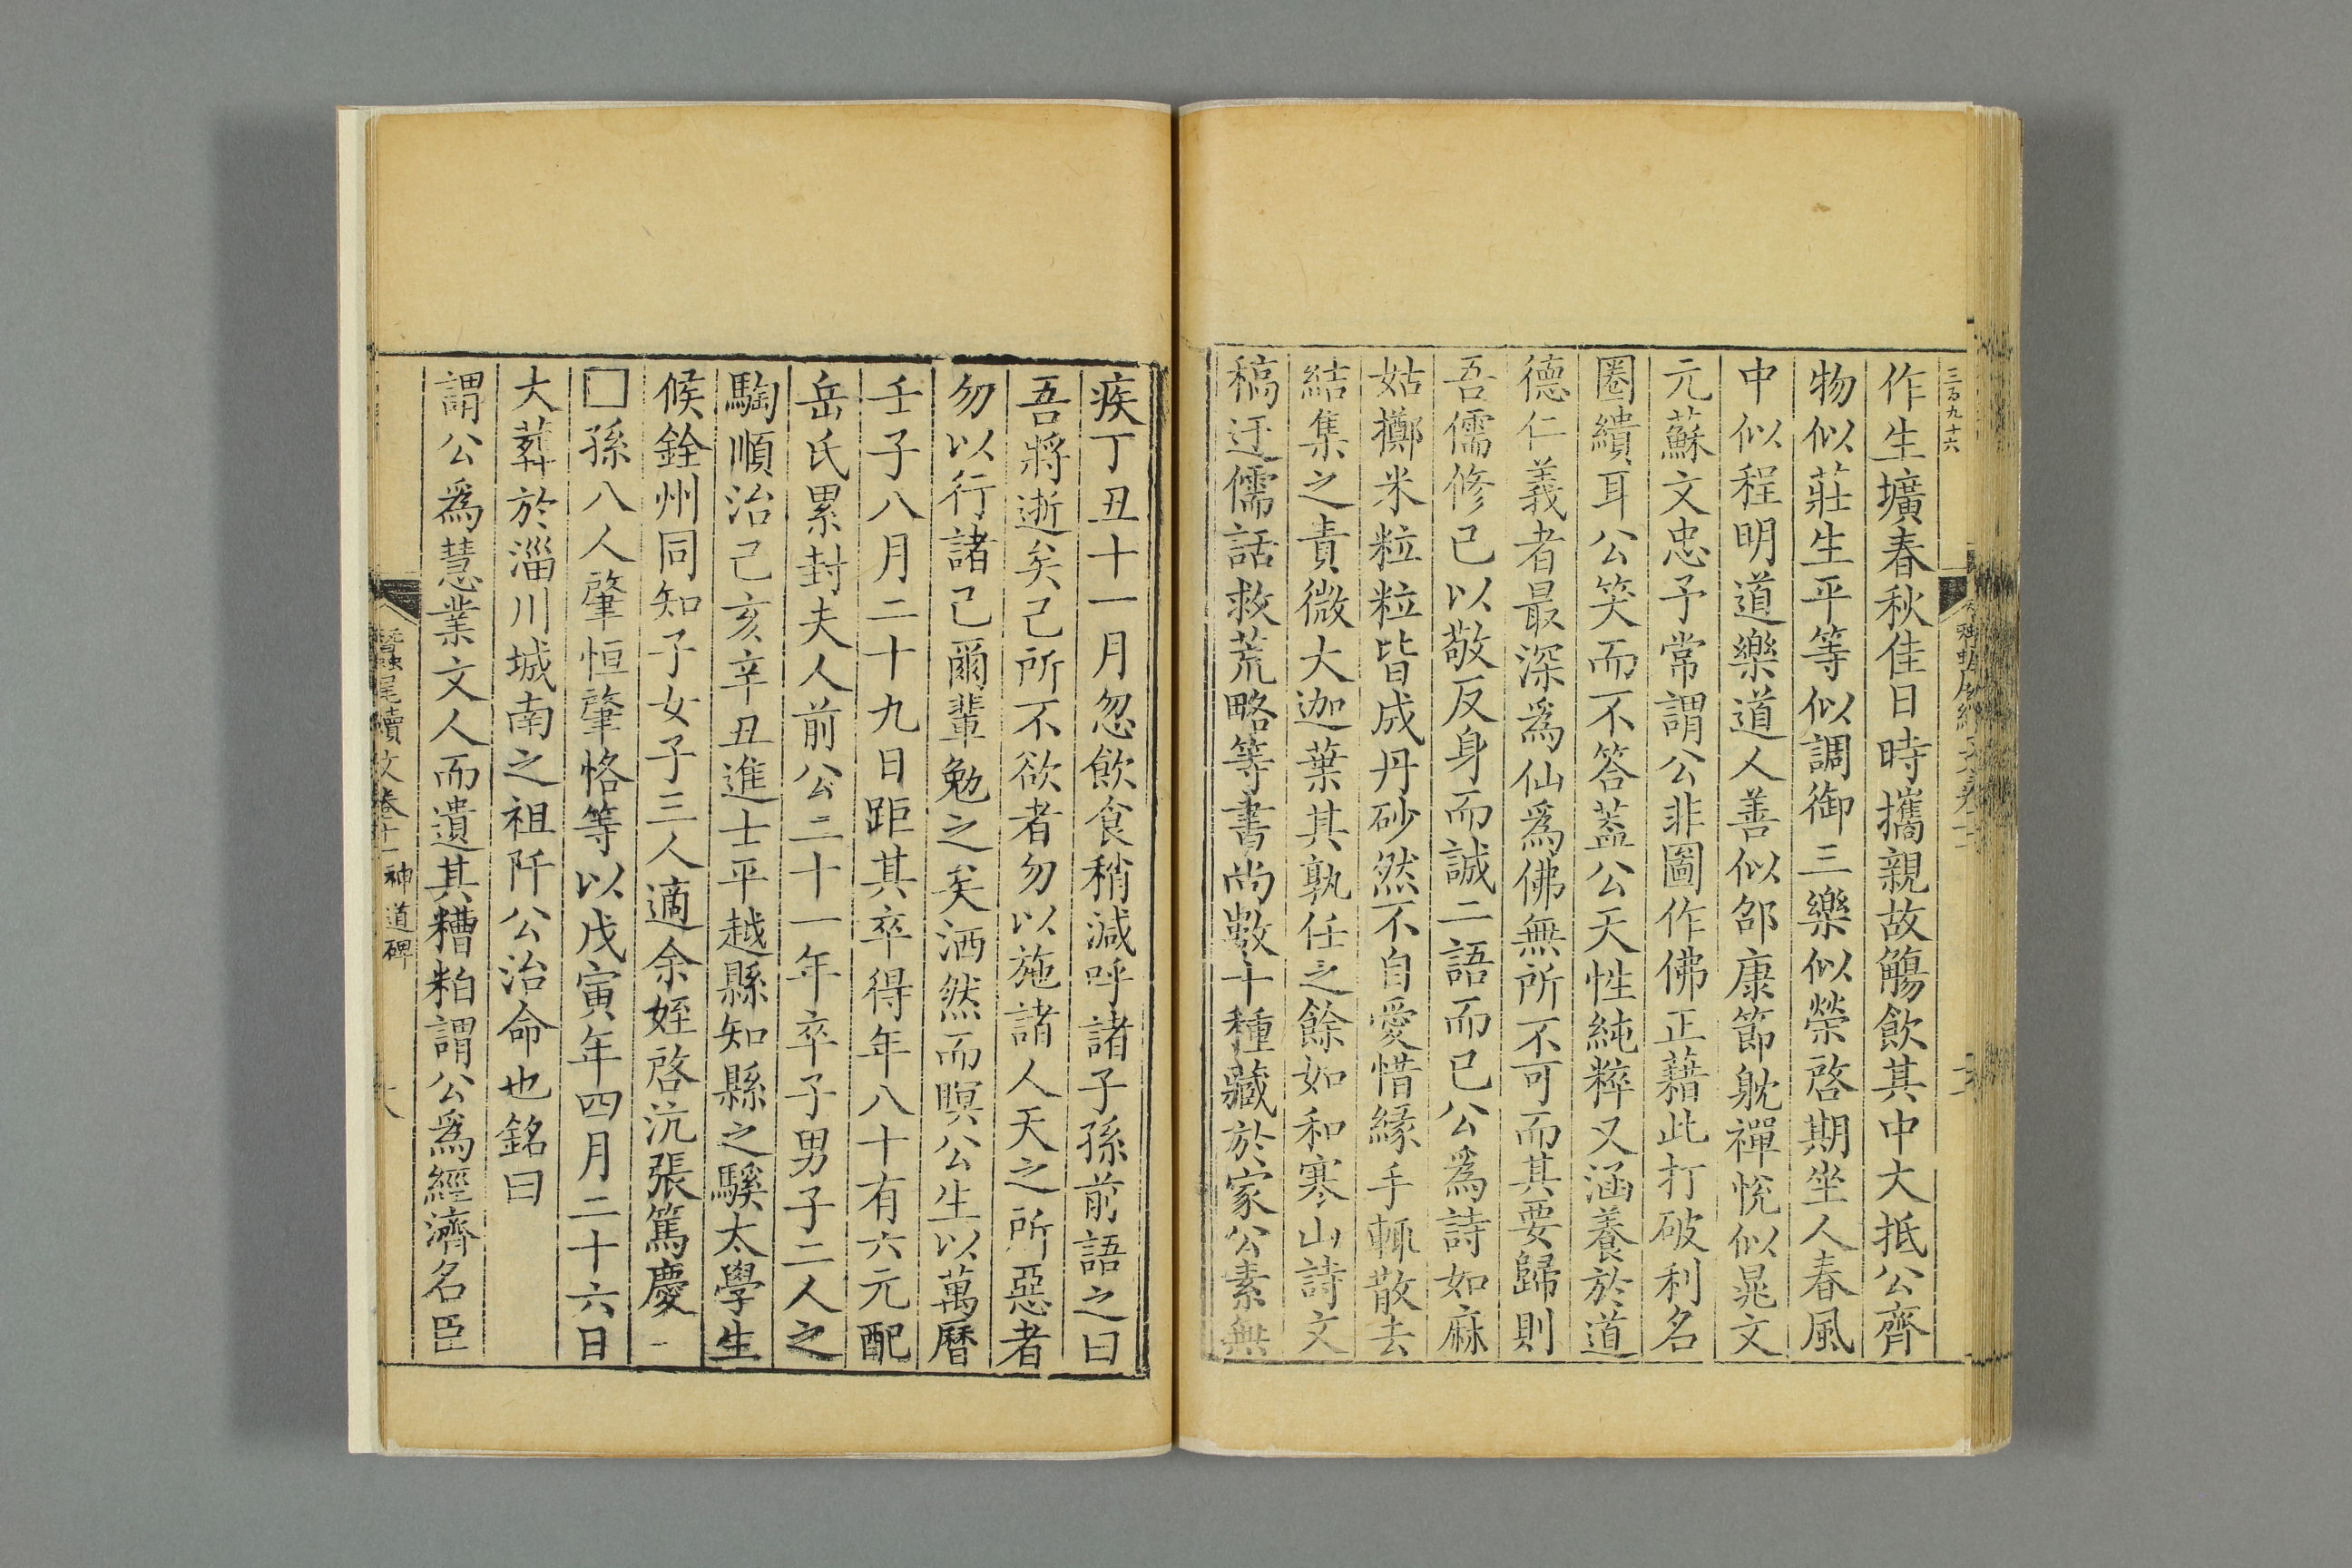 三百九十六
作生壙春秋佳日時攜親故觴飲其中大抵公齊
物似莊生平等似調御三樂似榮啓期坐人春風
中似程明道樂道人善似邵康節躭禪悅似晁文
元蘇文忠予常謂公非圖作佛正藉此打破利名
圈繢耳公笑而不答葢公天性純粹又涵養於道
德仁義者最深爲仙爲佛無所不可而其要歸則
吾儒修己以敬反身而誠二語而已公爲詩如麻
姑擲米粒粒皆成丹砂然不自愛惜緣手輒散去
結集之責微大迦葉其孰任之餘如和寒山詩文
稿迂儒話救荒略等書尚數十種藏於家公素無
疾丁丑十一月忽飲食稍減呼諸子孫前語之曰
吾將逝矣己所不欲者勿以施諸人天之所惡者
勿以行諸己爾輩勉之矣洒然而暝公生以萬曆
壬子八月二十九日距其卒得年八十有六元配
岳氏累封夫人前公二十一年卒子男子二人之
騊順治己亥辛丑進士平越縣知縣之騤太學生
候銓州同知子女子三人適余姪啓沆張篤慶一
□孫八人肇恒肇恪等以戊寅年四月二十六日
大葬於淄川城南之祖阡公治命也銘曰
謂公爲慧業文人而遺其糟粕謂公爲經濟名臣
蠶尾續文卷十一 神道碑